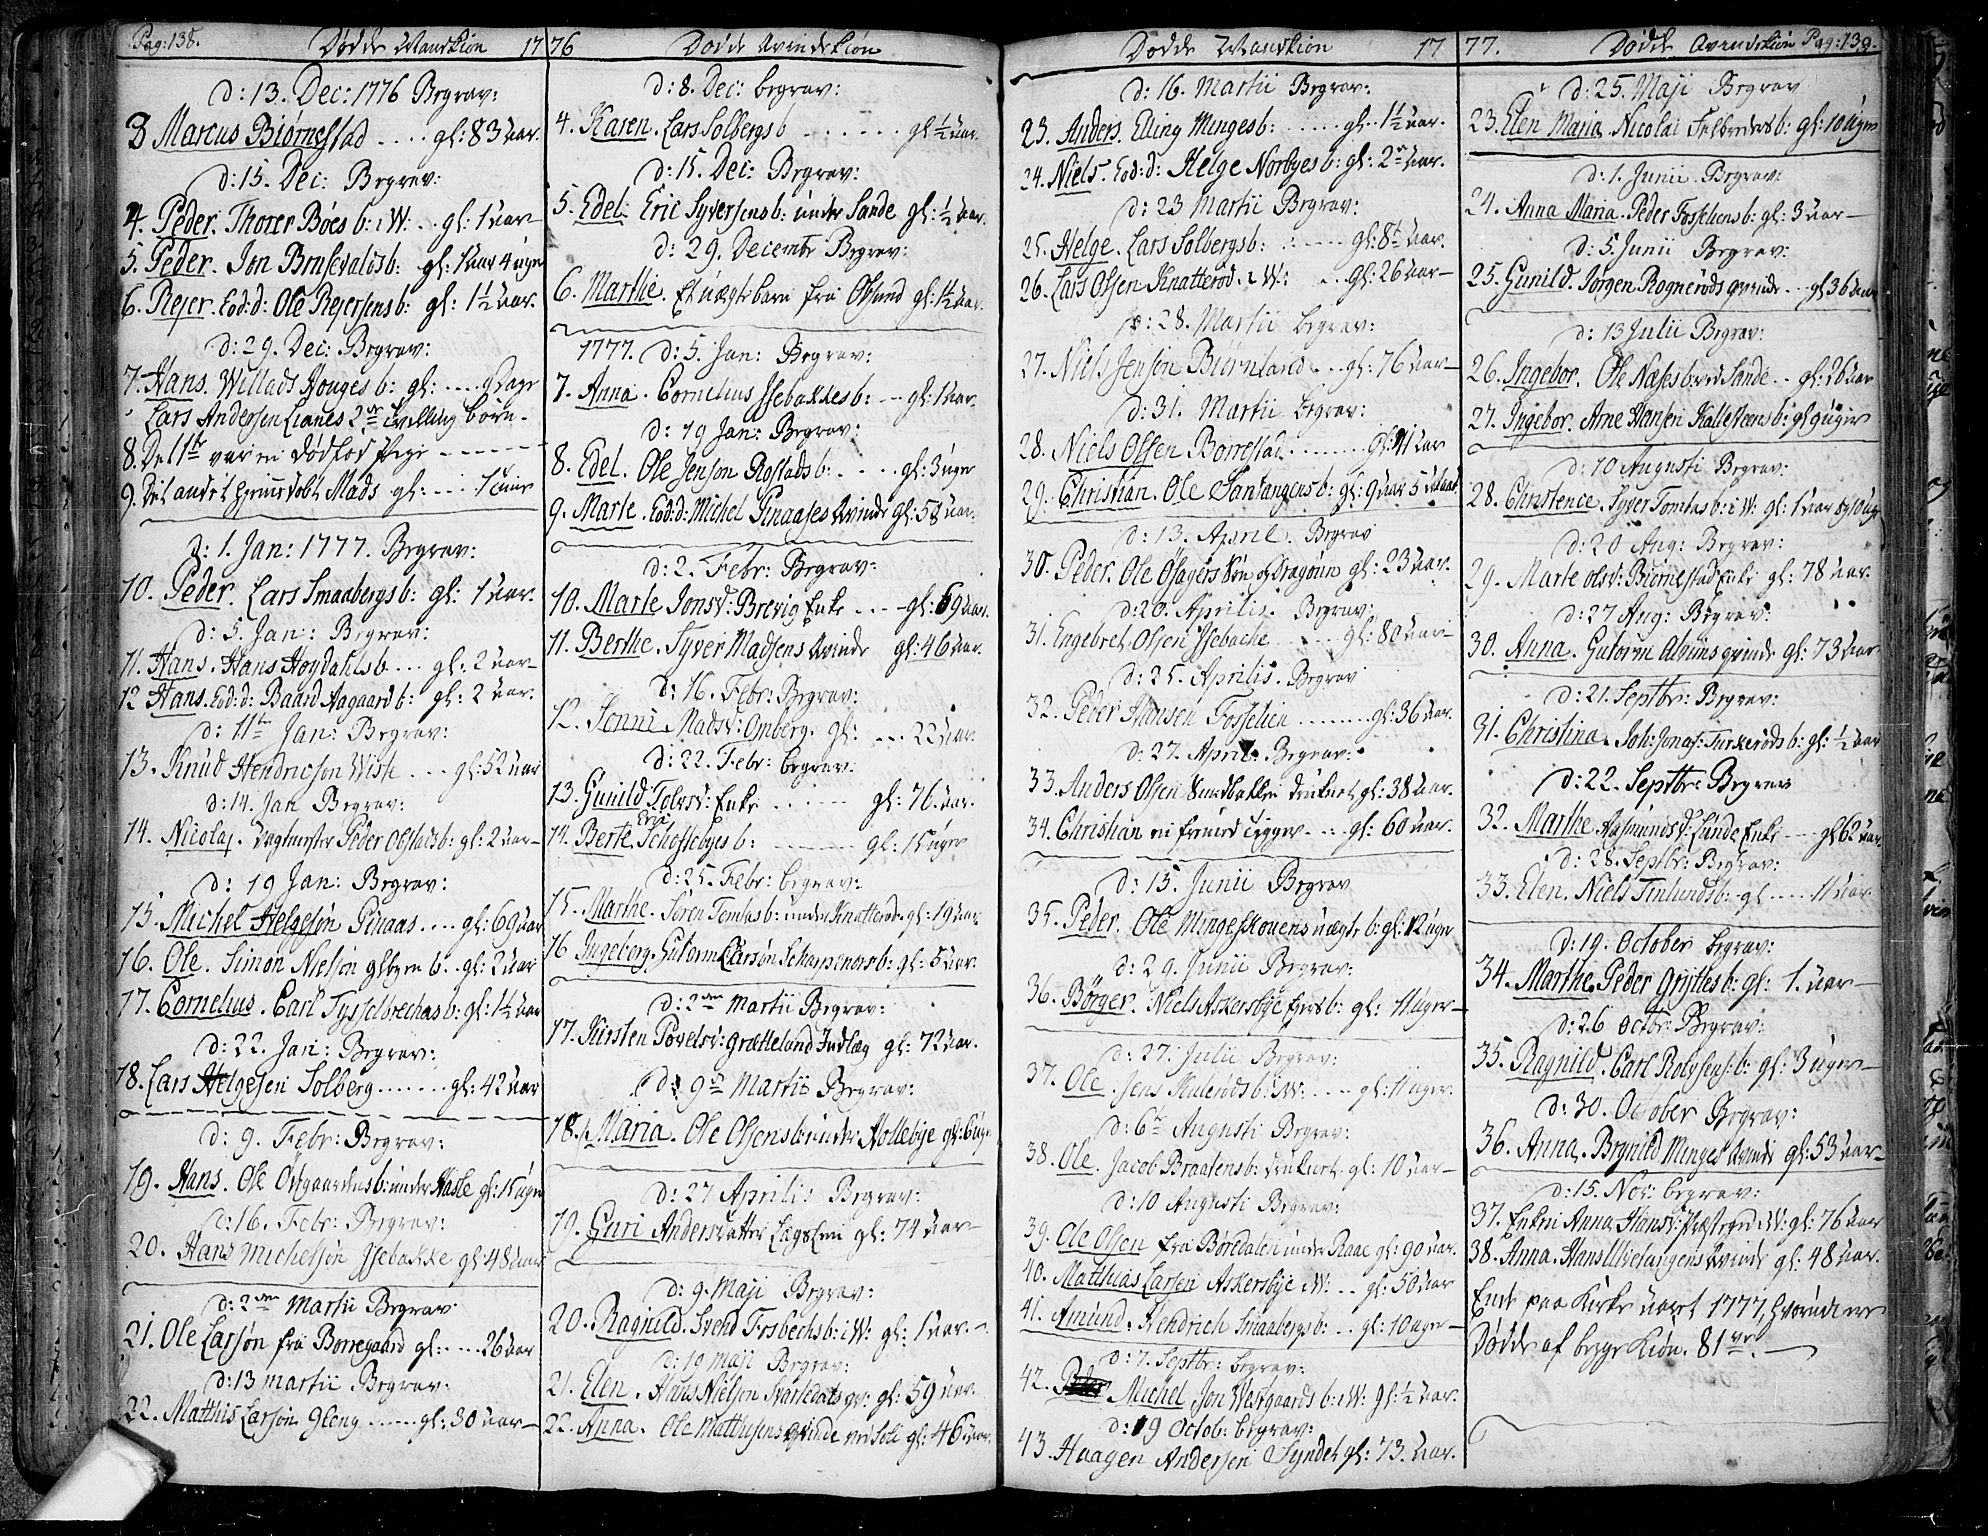 Pag: 138. Dødde Mandkiøn 17
d: 13. Dec: 1776 Begrav:
3 Marcus Biørnestad .... gl: 83 aar.
d: 15. Dec: Begrav:
4. Peder. Thorer Bøes b: i W: .. gl: 1 aar
5. Peder. Jon Brnsevaldsb: gl: 1 aar 4 uger
6. Rejer. Eod: d: Ole Rejersens b: gl: 1½ aar.
d: 29. Dec: Begrav:
7. Hans. Willads Houges b: gl: .... 9 Dage
Lars Andersen Lianes 2de tvilling børn.
8. Det 1te var en dødfød Pige
9. Det andet hjemmedøbt Mads gl: ... 1 time
d: 1. Jan: 1777. Begrav:
10. Peder. Lars Smaabergs b: gl: 1 aar.
d: 5. Jan: Begrav:
11. Hans. Hans Høydahls b ... gl: 2 aar
12 Hans. Eod: d: Baard Aagaard b: gl: 2 aar.
d: 11te Jan: Begrav:
13. Knud Hendricsøn Wiste ... gl: 52 aar
d: 14. Jan Begrav:
14. Nicolaj. Peder Olstads b: gl: 2 aar
d: 19 Jan: Begrav:
15. Michel Helgesøn Ginaas .... gl: 69 aar
16. Ole. Simon Nielsøn b .. gl: 2 aar
17. Cornelius. Carl Tysselbechas b: gl: 1½ aar
d: 22. Jan: Begrav:
18. Lars Helgesen Solberg ...... gl: 42 aar
d: 9. Febr: Begrav:
19. Hans. Ole Ostgaardens b: under Hasle gl: 15 uger
d: 16. Febr: Begrav:
20. Hans Michelsøn Issebakke gl: 48 aar
d: 2den Martii Begrav:
21. Ole Larsøn fra Borregaard gl: ... 26 aar
d: 13 Martii Begrav:
22. Matthis Larsøn Gleng ..... gl: 30 aar
76 Dødde Qvindekiøn
d: 8. Dec: begrav:
4. Karen. Lars Solbergs b ...... gl ½ aar.
d: 15. Dec: Begrav:
5. Edel. Eric Syversens b: under Sande gl: ½ aar.
d: 29. Decembr Begrav:
6. Marthe. Et uægte barn fra Olsund gl: 1½ aar.
1777. d: 5. Jan: Begrav:
7. Anna. Cornelius Issebakkes b: ... gl: 1 aar.
d: 19 Jan: Begrav:
8. Edel. Ole Jensøn Rostads b: .... gl: 3 uger
9. Marte. Eod: d: Michel Ginaases Qvinde gl: 58 aar.
d: 2. Febr: Begrav:
10. Marte Jonsd: Brevig Enke ... gl: 69 aar.
11. Berthe. Syver Madsens Qvinde gl: 46 aar.
d: 16. Febr: Begrav:
12. Jonni Madsd: Omberg. gl: ... 22 aar.
d: 22. Febr: begrav:
13. Gunild Tolvsd: Enke ...... gl: 76 aar.
14. Berte Schostebyes b: gl: 15 uger
d: 25. Febr: begrav:
15. Marthe. Søren Tomtas b: under Knatterød. gl: 19 aar
16 Ingeborg. Gutorm Larsøn Scharpenors b: gl: 5 aar.
d: 2den Martii Begrav:
17. Kirsten Povelsd: Grettelund Indlæg gl: 72 aar.
d: 9de Martii Begrav:
18. Maria. Ole Olsens b: under Hollebye gl: 6 uger
d: 27 Aprilis Begrav:
19. Guri Andersdatter gl: 74 aar
d: 9. Maji Begrav:
20. Ragnild. Svend Frsbechs b: i W: gl: 1 aar.
d: 19 Maji Begrav:
21. Elen. Hans Nielsøn Svartedals qv: gl: 59 aar.
22. Anna. Ole Matthisens Qvinde ved Soli gl: 46 aar.
Dødde Mandkiøn 17
d: 16. Martii Begrav:
23. Anders. Elling Minges b: ..... gl. 1½ aar.
24. Niels. Eod: d: Helge Norbyes b: gl: 2 aar.
d: 23 Martii Begrav:
25. Helge. Lars Solbergs b: ..... gl: 8 aar.
26. Lars Olsen Knatterød. i W: .. gl: 26 aar
d: 28. Martii begrav:
27. Niels Jensøn Biørnland ... gl: 76 aar
d: 31. Martii begrav:
28. Niels Olsen Borrestad ........ gl: 41 aar
29. Christian. Ole Santangens b: gl: 9 aar 5 Maan.
d: 13. April. Begrav
30. Peder. Ole Øsagers Søn og Dragoun gl: 23 aar.
d: 20. Aprilis. Begrav:
31. Engebret Olsen Issebache ..... gl: 80 aar
d: 25. Aprilis. Begrav
32. Peder Hansen Fosselien ........ gl: 36 aar.
d: 27. April. Begrav:
33. Anders Olsen Sundløkken druknet gl: 38 aar.
34. Christian en fremmed tigger ... gl: 60 aar.
d: 15. Junii Begrav
35. Peder. Ole Mingeskouens uægte b: gl: 12 uger
d: 29. Junii Begrav:
36. Børger. Niels Askersbye Eyers b: gl: 11 uger
d: 27. Julii Begrav:
37. Ole Jens Skulerøds b: i W: .... gl: 11 uger.
d: 6te Augusti Begrav:
38. Ole. Jacob Braatens b: druknet. gl: 10 aar
d: 10 Augusti Begrav:
39. Ole Olsen fra Børedalen under Raae gl: 90 aar.
40. Matthias Larsen Askersbye i W: .. gl: 50 aar
41. Amund. Hendrich Smaabergs b: .. gl: 10 uger
d: 7. Septbr: begrav:
42. Michel Jon Westgaards b: i W: gl: ½ aar.
d: 19 Octob: begrav:
43. Haagen Andersen Synder gl: 73. aar.
77. Dødde Qvindekiøn Pag: 139.
d: 25. Maji Begrav
23. Elen Maria Nicolai b: gl: 10 uger
d: 1. Junii Begrav:
24. Anna Maria. Peder Fosseliens b: gl: 3 aar
d: 5. Junii Begrav:
25. Gunild. Jørgen Rognerøds qvinde .. gl 36 aar
d: 13 Julii Begrav:
26. Ingebor. Ole Næses b: ved Sande .. gl: 26 aar
27. Ingebor. Arne Hansen Kallesteens b: gl 9 uger
d: 10 Augusti Begrav:
28. Christence. Syver Tomtas b: i W: gl: 1 aar og 10 ug.
d: 20 Aug: Begrav:
29. Marte Olsd: Biørnestad Enke gl: 78 aar.
d: 27 Aug: Begrav:
30. Anna. Gutorm Alvims qvinde gl: 73 aar
d: 21. Septbr: Begrav:
31. Christina. Joh: Jonas: Turkerøds b: gl: ½ aar
d: 22. Septbr: Begrav
32. Marthe Aasmundsd: Lunde Enke ... gl 62 aar.
d: 28. Septbr: Begrav:
33. Elen. Niels Tinlunds b: gl .... 11 aar.
d: 19. October begrav:
34. Marthe. Peder Gryttes b: gl: 1. aar
d: 26 Octbr: Begrav:
35. Ragnild. Carl Rolvsens: b: gl: 3 uger
d: 30. October Begrav:
36. Anna. Brynild Minges Qvinde gl: 53 aar
d: 15. Nov: begrav:
37. Enken Anna Hansd: i W: gl: 76 aar
38. Anna. Hans Ulvetangens Qvinde gl: 48 aar.
Endt paa Kirke aaret 1777, hvorudi ere
Dødde af begge Kiøn. 81